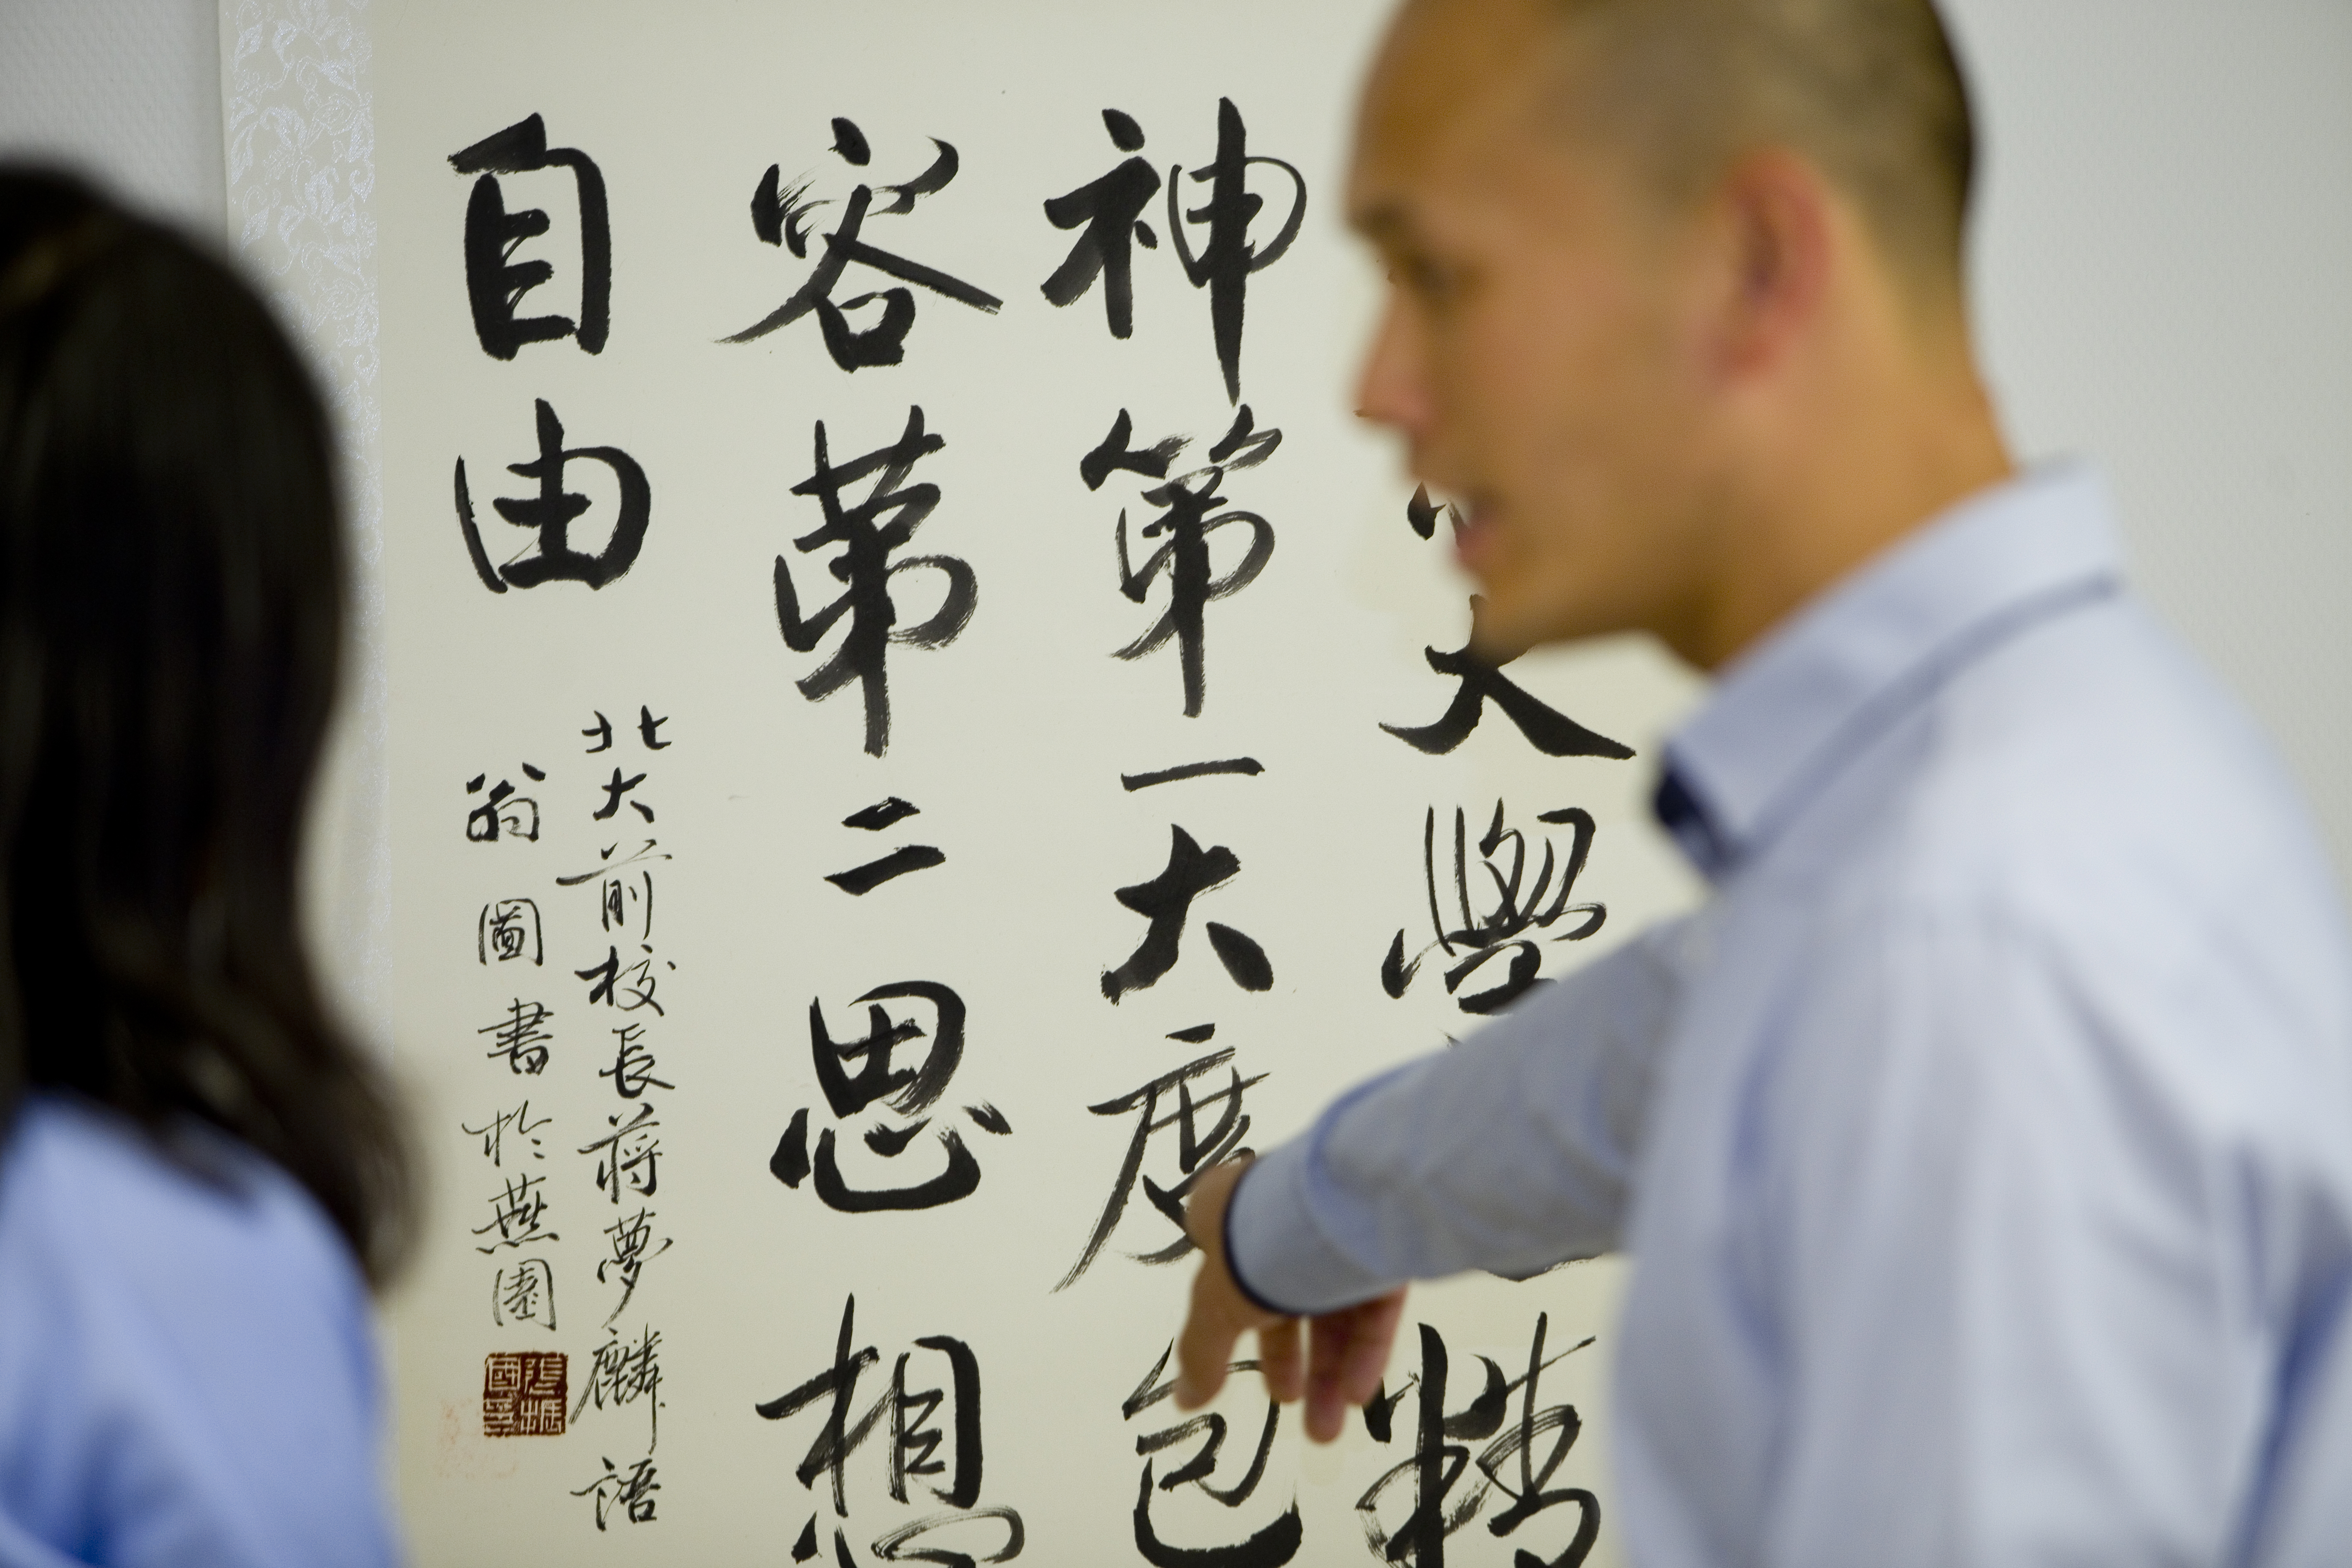 大學精
神第一大度包
容第二思想
自由
北大前校長蔣夢麟語
翁圖書於燕園